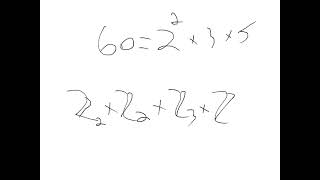 60 = 2² × 3 × 5
ℤ₂ × ℤ₂ × ℤ₃ × ℤ